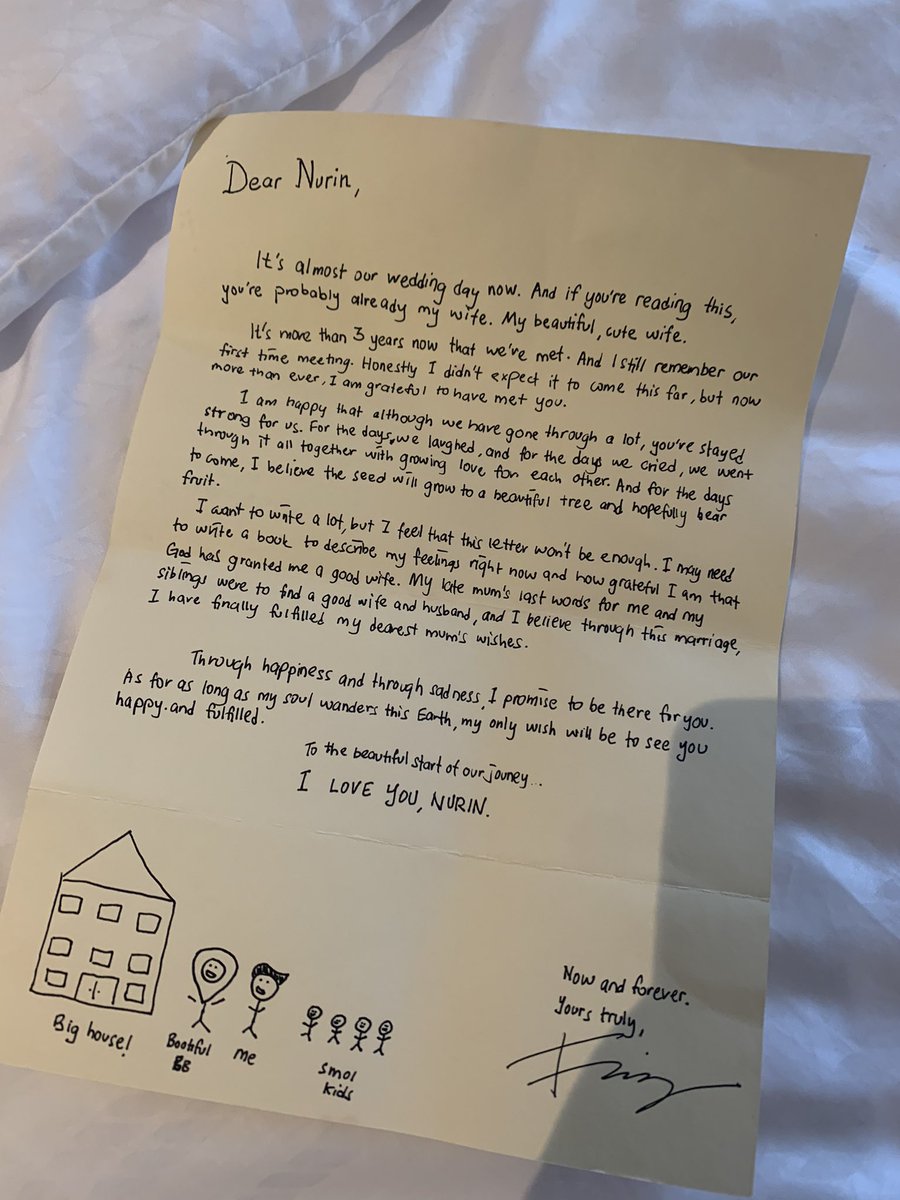 Dear Nurin,
It's almost our wedding day now. And if you're reading this,
you're probably already my wife. My beautiful, cute wife.
It's more than 3 years now that we've met. And I still remember our
first time meeting. Honestly I didn't expect it to come this far, but now
more than ever, I am grateful to have met you.
I am happy that although we have gone through a lot, you're stayed
strong for us. For the days we laughed, and for the days we cried, we went
through it all together with growing love for each other. And for the days
to come, I believe the seed will grow to a beautiful tree and hopefully bear
fruit.
I want to write a lot, but I feel that this letter won't be enough. I may need
to write a book to describe my feelings right now and how grateful I am that
God has granted me a good wife. My late mum's last words for me and my
siblings were to find a good wife and husband, and I believe through this marriage,
I have finally fulfilled my dearest mum's wishes.
Through happiness and through sadness, I promise to be there for you.
As for as long as my soul wanders this Earth, my only wish will be to see you
happy and fulfilled.
To the beautiful start of our jouney...
I LOVE YOU, NURIN.
Big house!
Bootiful
BB
me
smol
kids
Now and forever.
Yours truly,